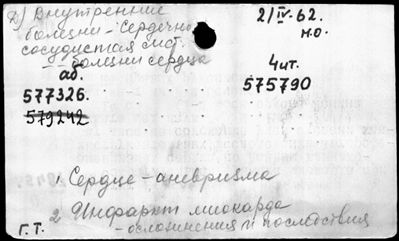 2) Внутренние
болезни - Сердечно
сосудистая сист.
- болезни сердца
2/IV-62.
н.о.
аб.
577326.
579242
4 чит.
575790
1. Сердце - аневризма
2 Инфаркт миокарда
- осложнения и последствия
Г.Т.